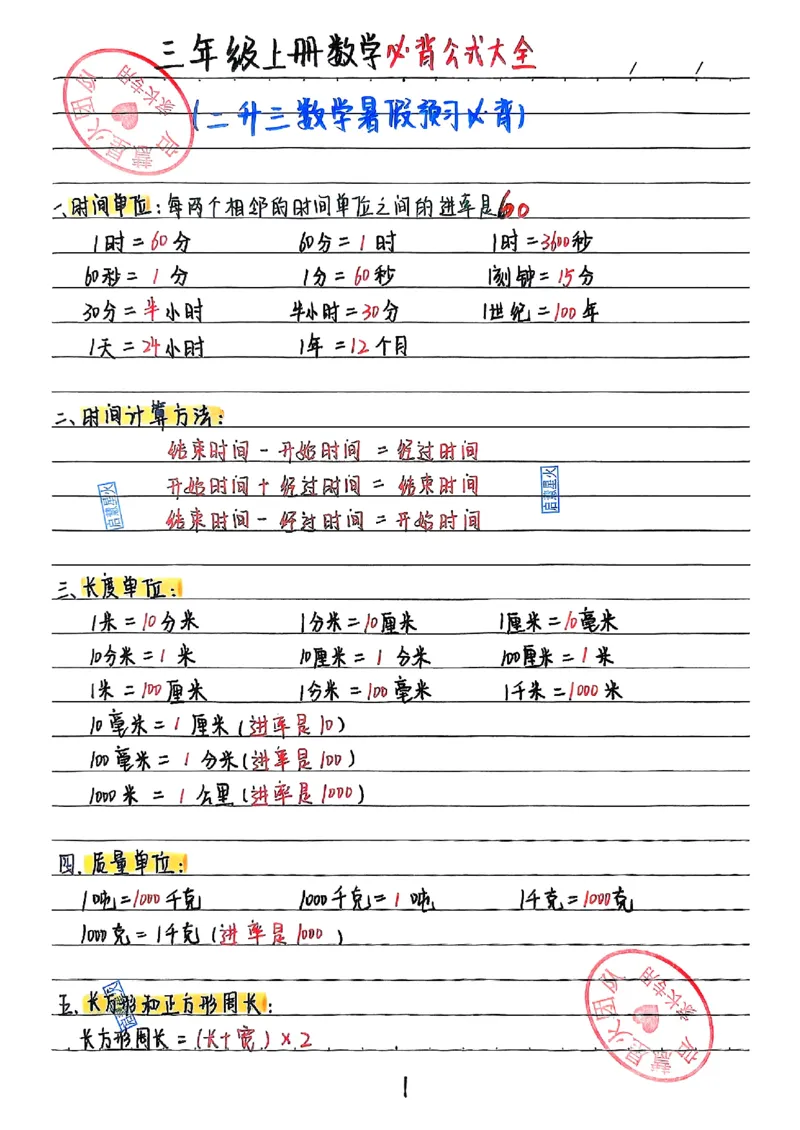 三年级上册数学必背公式大全
(二升三数学暑假预习必背)
启慧星火团队
家长专用
一、时间单位:每两个相邻的时间单位之间的进率是60
1时=60分 60分=1时 1时=3600秒
60秒=1分 1分=60秒 1刻钟=15分
30分=半小时 半小时=30分 1世纪=100年
1天=24小时 1年=12个月
二、时间计算方法:
结束时间-开始时间=经过时间
开始时间+经过时间=结束时间
结束时间-经过时间=开始时间
启慧星火
启慧星火
三、长度单位:
1米=10分米 1分米=10厘米 1厘米=10毫米
10分米=1米 10厘米=1分米 100厘米=1米
1米=100厘米 1分米=100毫米 1千米=1000米
10毫米=1厘米(进率是10)
100毫米=1分米(进率是100)
1000米=1公里(进率是1000)
四、质量单位:
1吨=1000千克 1000千克=1吨 1千克=1000克
1000克=1千克(进率是1000)
五、长方形和正方形周长:
长方形周长=(长+宽)×2
启慧星火团队
家长专用
1